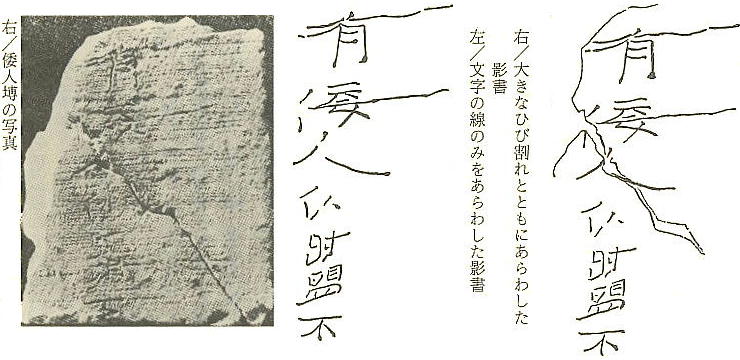 有倭人以時盟不
右/大きなひび割れとともにあらわした
影書
左/文字の線のみをあらわした影書
有倭人以時盟不
右/倭人塼の写真